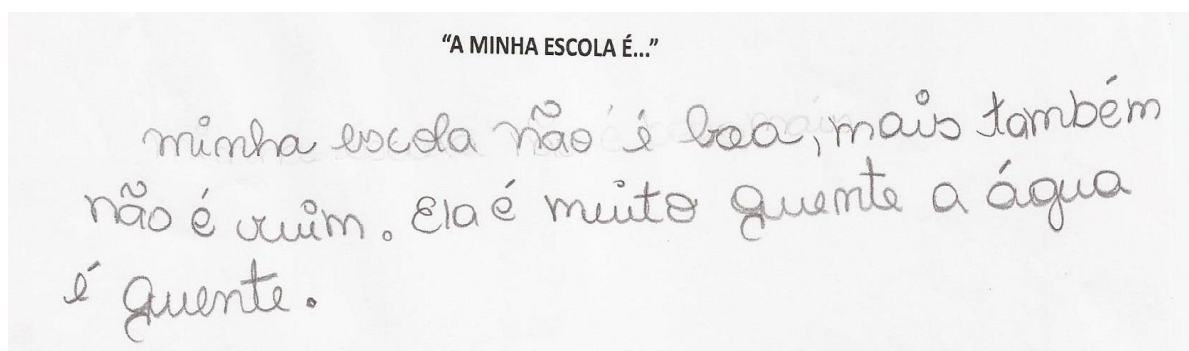 "A MINHA ESCOLA É..."
minha escola não é boa, mais também
não é ruim. Ela é muito quente a água
é quente.